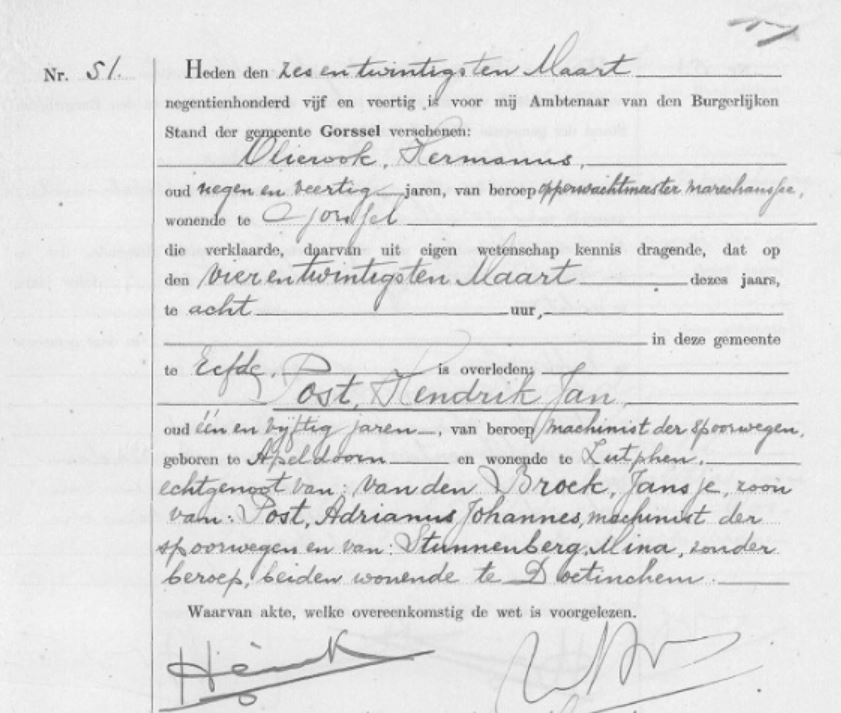 Nr. 51.
Heden den zes en twintigsten Maart
negentienhonderd vijf en veertig is voor mij Ambtenaar van den Burgerlijken
Stand der gemeente Gorssel verschenen:
Olierook, Hermanus,
oud negen en veertig jaren, van beroep opperwachtmeester marechaussee,
wonende te Gorssel
die verklaarde, daarvan uit eigen wetenschap kennis dragende, dat op
den vier en twintigsten Maart dezes jaars,
te acht uur,
in deze gemeente
te Eefde, is overleden:
Post, Hendrik Jan,
oud één en vijftig jaren, van beroep machinist der spoorwegen,
geboren te Apeldoorn en wonende te Zutphen,
echtgenoot van: van den Broek, Jansje, zoon
van: Post, Adrianus Johannes, machinist der
spoorwegen en van: Stunnenberg, Mina, zonder
beroep, beiden wonende te Doetinchem.
Waarvan akte, welke overeenkomstig de wet is voorgelezen.